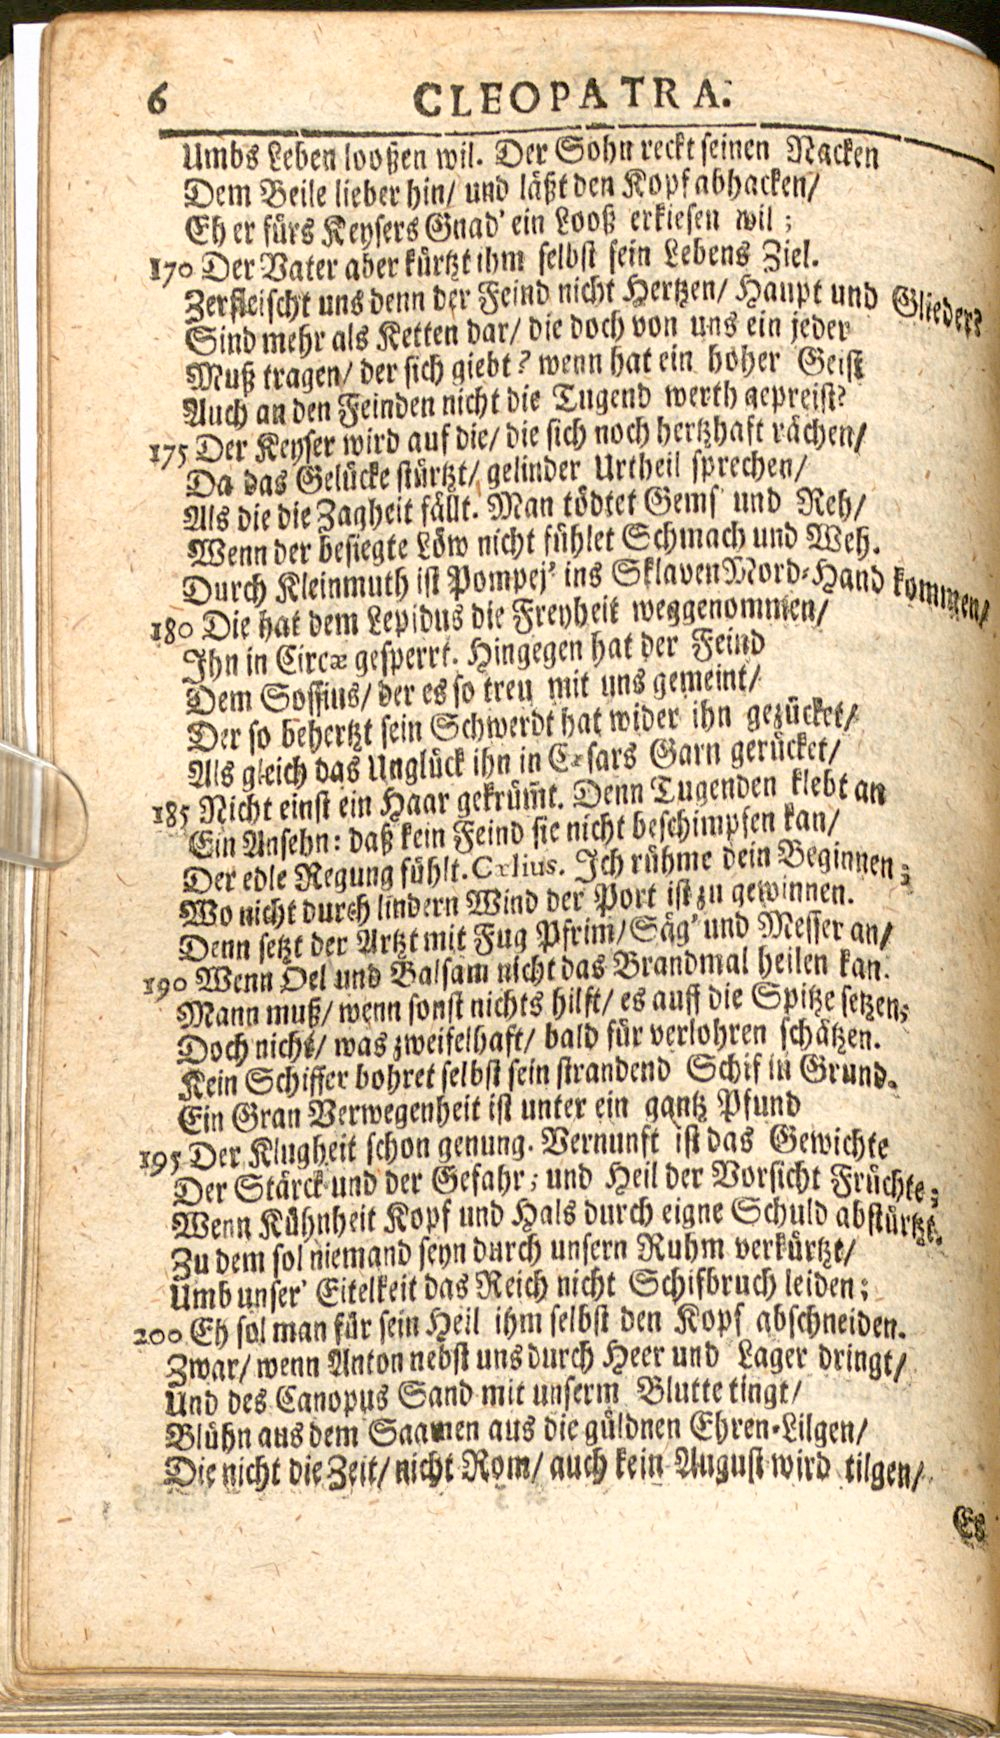 6 CLEOPATRA.
Umbs Leben looßen wil. Der Sohn reckt seinen Nacken
Dem Beile lieber hin/ und läßt den Kopf abhacken/
Eh er fürs Keysers Gnad' ein Looß erkiesen wil;
170 Der Vater aber kürtzt ihm selbst sein Lebens Ziel.
Zerfleischt uns denn der Feind nicht Hertzen/ Haupt und Glieder?
Sind mehr als Ketten dar/ die doch von uns ein jeder
Muß tragen/ der sich giebt? wenn hat ein hoher Geist
Auch an den Feinden nicht die Tugend werth gepreist?
175 Der Keyser wird auf die/ die sich noch hertzhaft rächen/
Da das Gelücke stürtzt/ gelinder Urtheil sprechen/
Als die die Zagheit fällt. Man tödtet Gems' und Reh/
Wenn der besiegte Löw nicht fühlet Schmach und Weh.
Durch Kleinmuth ist Pompej' ins Sklaven Mord-Hand kommen/
180 Die hat dem Lepidus die Freyheit weggenommen/
Ihn in Circæ gesperrt. Hingegen hat der Feind
Dem Sossius/ der es so treu mit uns gemeint/
Der so behertzt sein Schwerdt hat wider ihn gezücket/
Als gleich das Unglück ihn in Cæsars Garn gerücket/
185 Nicht einst ein Haar gekrüm̃t. Denn Tugenden klebt an
Ein Ansehn: daß kein Feind sie nicht beschimpfen kan/
Der edle Regung fühlt. Cælius. Ich rühme dein Beginnen;
Wo nicht durch lindern Wind der Port ist zu gewinnen.
Denn setzt der Artzt mit Fug Pfrim/ Säg' und Messer an/
190 Wenn Oel und Balsam nicht das Brandmal heilen kan.
Mann muß/ wenn sonst nichts hilft/ es auff die Spitze setzen;
Doch nicht/ was zweifelhaft/ bald für verlohren schätzen.
Kein Schiffer bohret selbst sein strandend Schif in Grund.
Ein Gran Verwegenheit ist unter ein gantz Pfund
195 Der Klugheit schon genung. Vernunft ist das Gewichte
Der Stärck und der Gefahr; und Heil der Vorsicht Früchte;
Wenn Kühnheit Kopf und Hals durch eigne Schuld abstürtzt.
Zu dem sol niemand seyn durch unsern Ruhm verkürtzt/
Umb unser' Eitelkeit das Reich nicht Schifbruch leiden;
200 Eh sol man für sein Heil ihm selbst den Kopf abschneiden.
Zwar/ wenn Anton nebst uns durch Heer und Lager dringt/
Und des Canopus Sand mit unserm Blutte tingt/
Blühn aus dem Saamen aus die güldnen Ehren-Lilgen/
Die nicht die Zeit/ nicht Rom/ auch kein August wird tilgen/
Es